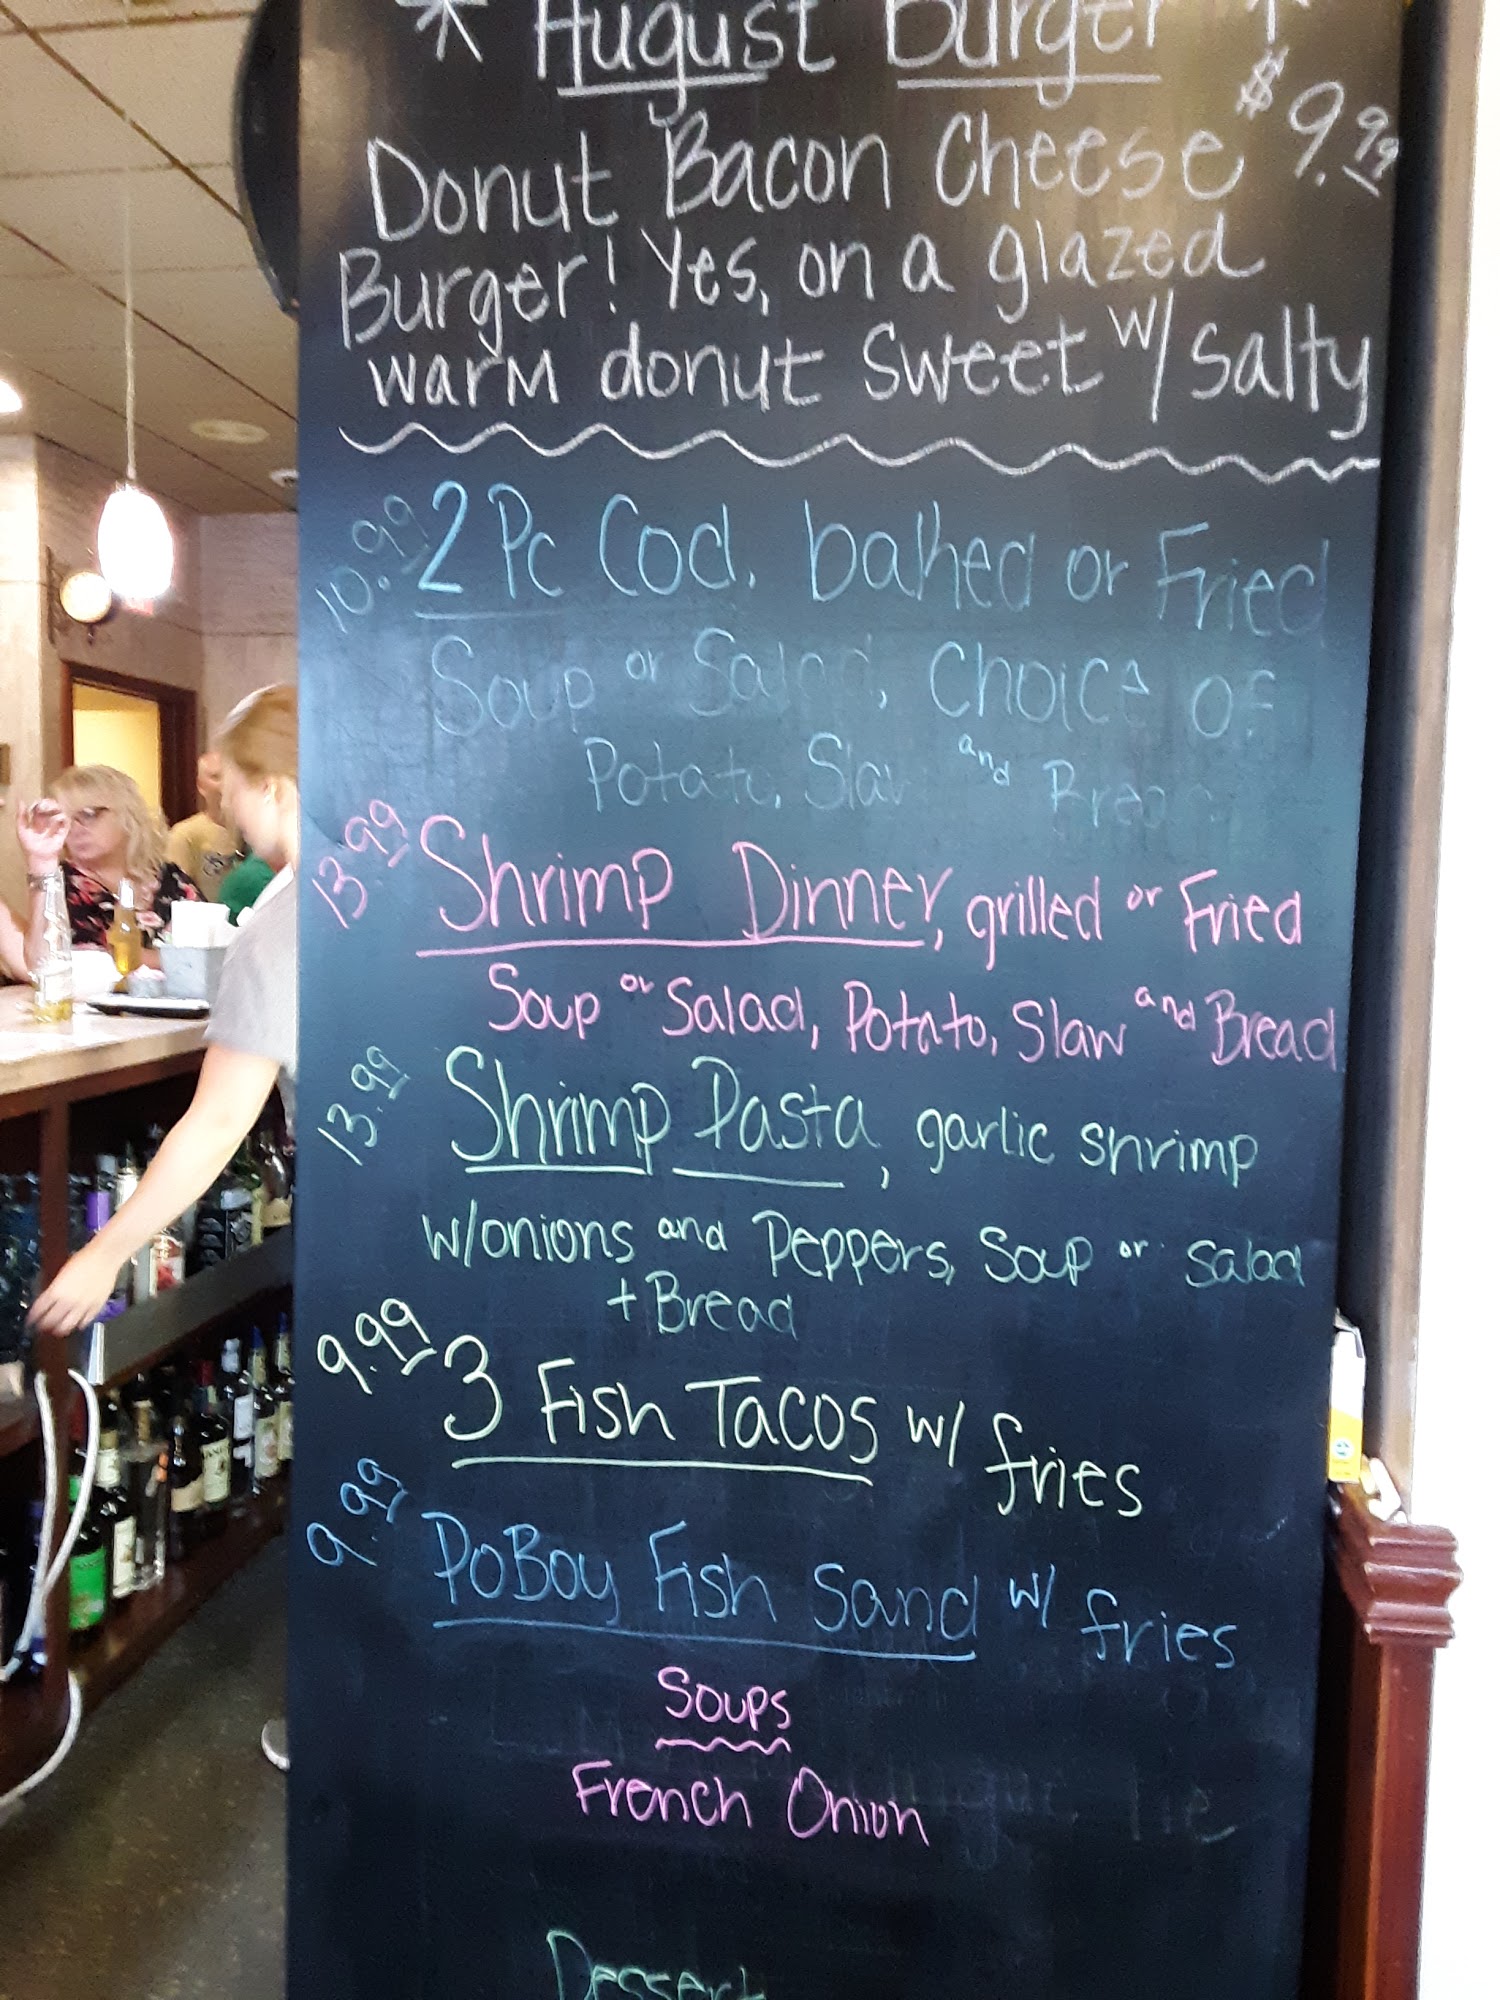 * August Burger *
$9.99
Donut Bacon Cheese
Burger! Yes, on a glazed
warm donut Sweet w/ Salty
10.99 2 Pc Cod, baked or Fried
Soup or Salad, Choice of
Potato, Slaw and Bread
13.99 Shrimp Dinner, grilled or Fried
Soup or Salad, Potato, Slaw and Bread
13.99 Shrimp Pasta, garlic shrimp
w/onions and Peppers, Soup or Salad
+ Bread
9.99 3 Fish Tacos w/ fries
9.99 PoBoy Fish Sand w/ fries
Soups
French Onion
Dessert